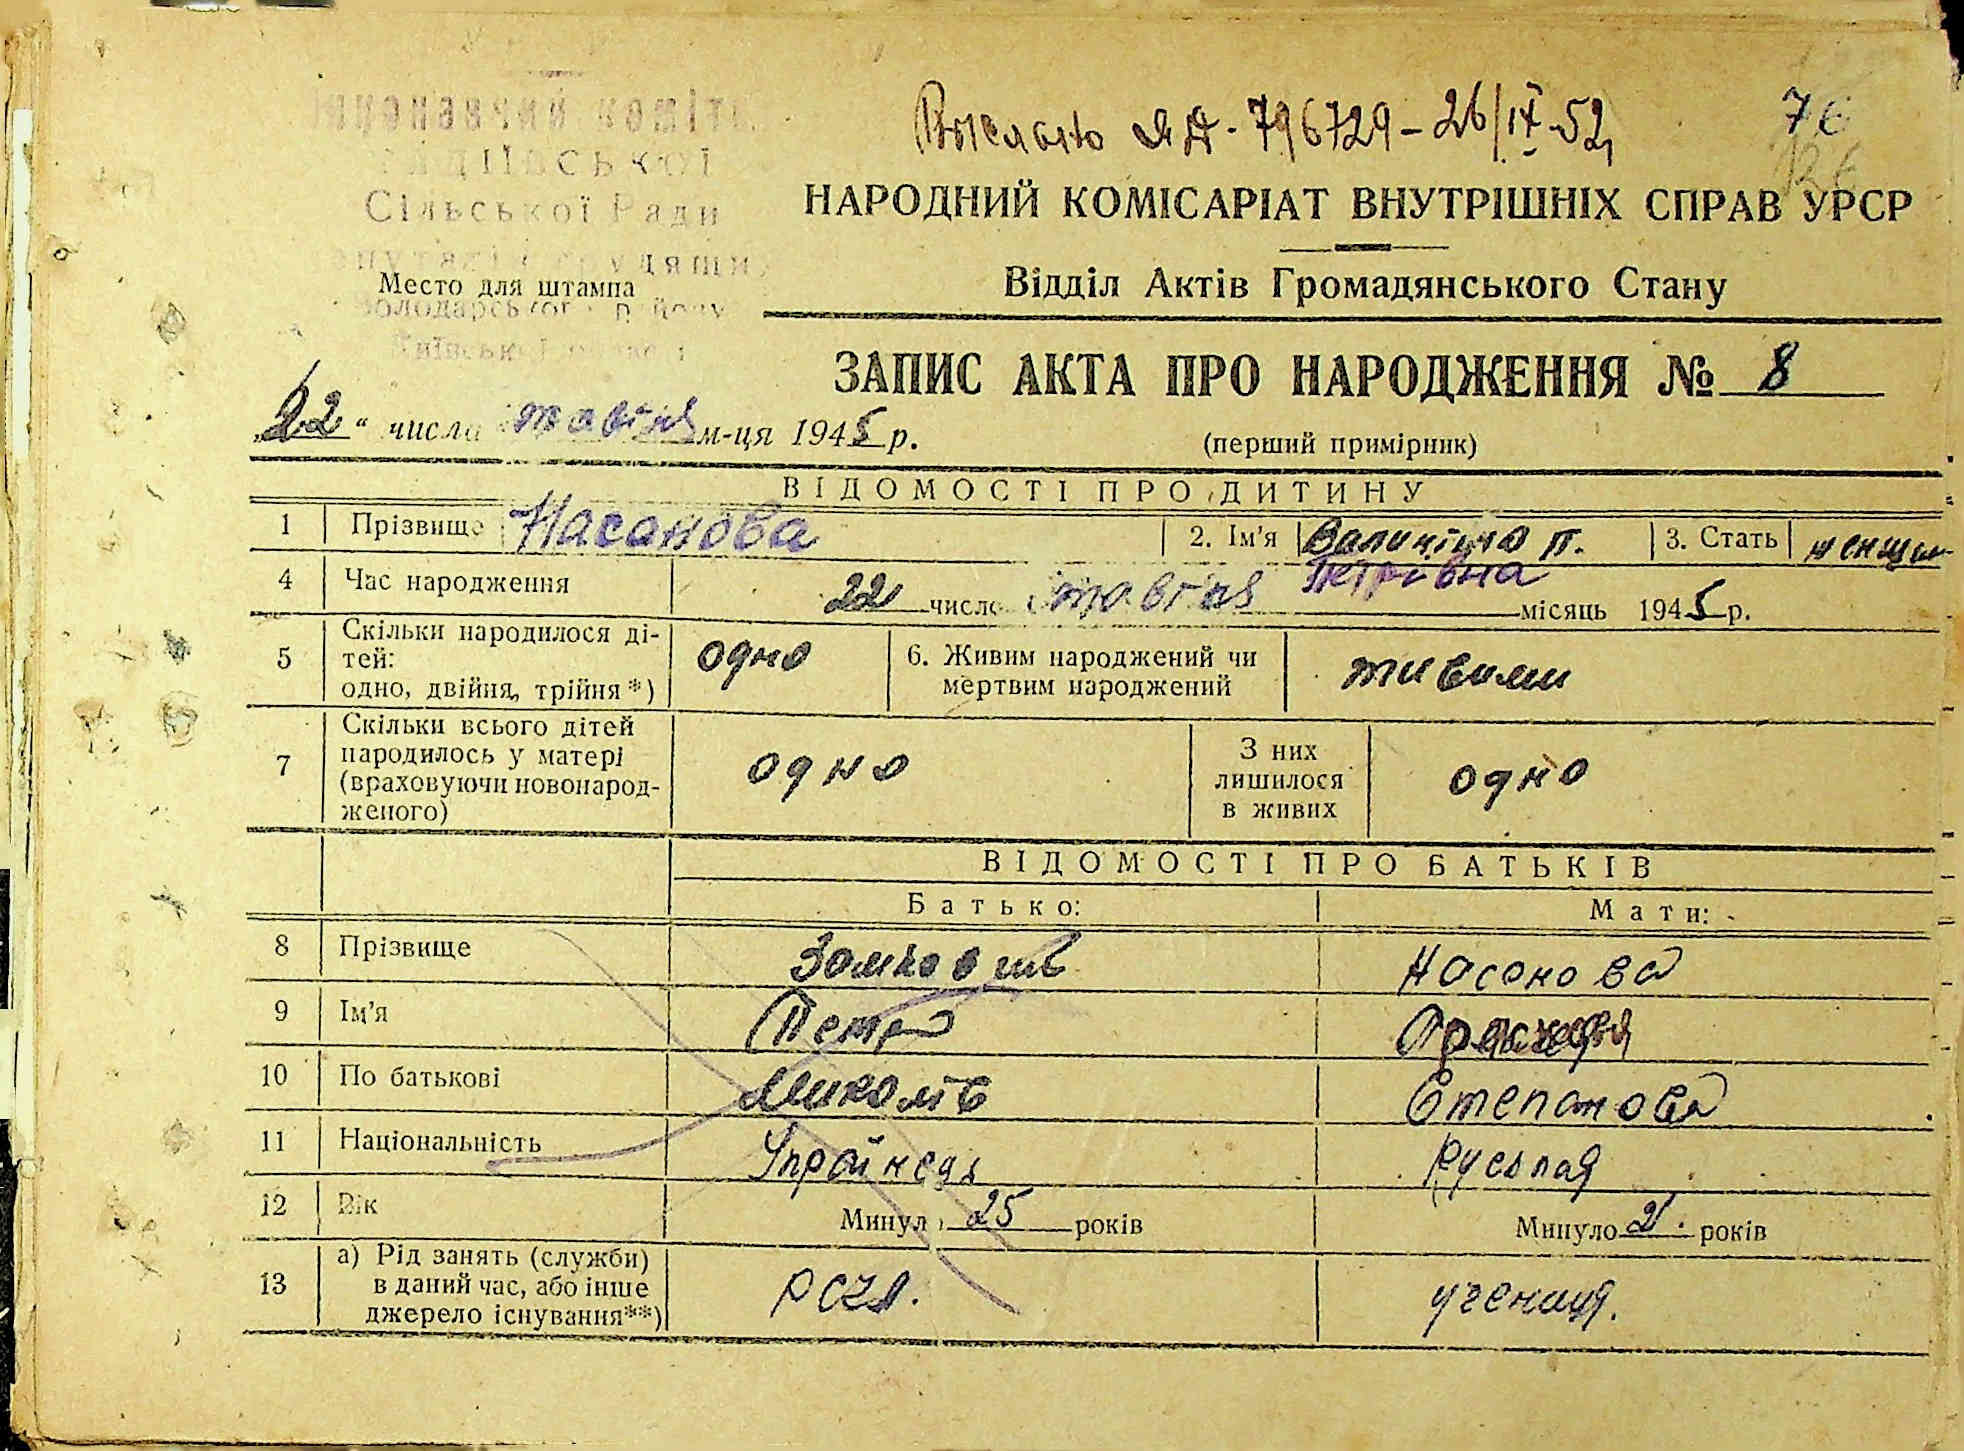 Сільської Ради
Место для штампа
Выслано ЯД-796729-26/IX-52
76
126
НАРОДНИЙ КОМІСАРІАТ ВНУТРІШНІХ СПРАВ УРСР
Відділ Актів Громадянського Стану
ЗАПИС АКТА ПРО НАРОДЖЕННЯ № 8
„22“ числа травня м-ця 1945 р.
(перший примірник)
ВІДОМОСТІ ПРО ДИТИНУ
1 Прізвище Насонова 2. Ім'я П. 3. Стать
Петрівна
4 Час народження 22 число травня місяць 1945 р.
5 Скільки народилося ді-
тей:
одно, двійня, трійня *) одно 6. Живим народжений чи
мертвим народжений живими
7 Скільки всього дітей
народилось у матері
(враховуючи новонарод-
женого) одно З них
лишилося
в живих одно
ВІДОМОСТІ ПРО БАТЬКІВ
Батько: Мати:
8 Прізвище Насонова
9 Ім'я Петро
10 По батькові Степанова
11 Національність
12 Вік Минуло 25 років Минуло років
13 а) Рід занять (служби)
в даний час, або інше
джерело існування**) РСЧА. учениця.